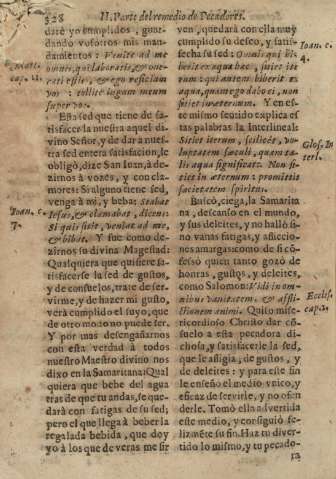 328 II. Parte del remedio de Pecadores.
darè yo cumplidos, guar-
dando vosotros mis man-
damientos: Venite ad me
omnes, qui laboratis, & one-
rati estis, & ego reficiam
vos: tollite iugum meum
super vos.
Essa sed que tiene de sa-
tisfacer la nuestra aquel divi
no Señor, y de dar a nues-
tra sed entera satisfacion, le
obligò, dize San Iuan, à de-
zirnos à vozes, y con cla-
mores: Si alguno tiene sed,
venga à mi, y beba: Stabat
Iesus, & clamabat, dicens:
Si quis sitit, veniat ad me,
& bibat. Y fue como de-
zirnos su divina Magestad:
Qualquiera que quisiere sa-
tisfacerse la sed de gustos,
y de consuelos, trate de ser-
virme, y de hazer mi gusto,
verà cumplido el suyo, que
de otro modo no puede ser.
Y por mas desengañarnos
con esta verdad à todos
nuestro Maestro divino nos
dixo en la Samaritana: Qual
quiera que bebe del agua
tras de que tu andas, se que-
darà con fatigas de su sed;
pero el que llega à beber la
regalada bebida, que doy
yo à los que de veras me sir
Ioan. c.
7.
ven, quedarà con ella muy
cumplido su deseo, y satis-
fecha su sed: Omnis qui bi-
berit ex aqua hac, sitiet ite
rum: qui autem biberit ex
aqua, quam ego dabo ei, non
sitiet in æternum. Y en es-
te mismo sentido explica es
tas palabras la Interlineal:
Sitiet iterum, scilicèt, vo-
luptatem sæculi, quam ta-
lis aqua significat. Non si-
tiet in æternum: promittit
societatem spiritus.
Buscò, ciega, la Samarita
na, descanso en el mundo,
y sus deleites, y no hallò si-
no vanas fatigas, y affliccio-
nes amargas: como de si cõ-
fessò quien tanto gozò de
honras, gustos, y deleites,
como Salomon: Vidi in om-
nibus vanitatem, & afflic-
tionem animi. Quiso mise-
ricordioso Christo dar cõ-
suelo a esta pecadora di-
chosa, y satisfacerle la sed,
que le afligia, de gustos, y
de deleites: y para este fin
le enseñò el medio vnico, y
eficaz de servirle, y no ofen
derle. Tomò ella advertida
este medio, y consiguiò fe-
lizmẽte su fin. Haz tu diver-
tido lo mismo, y tu pecado-
ra
Ioan. c.
4.
Glos. In
terl.
Eccles.
cap. 1.